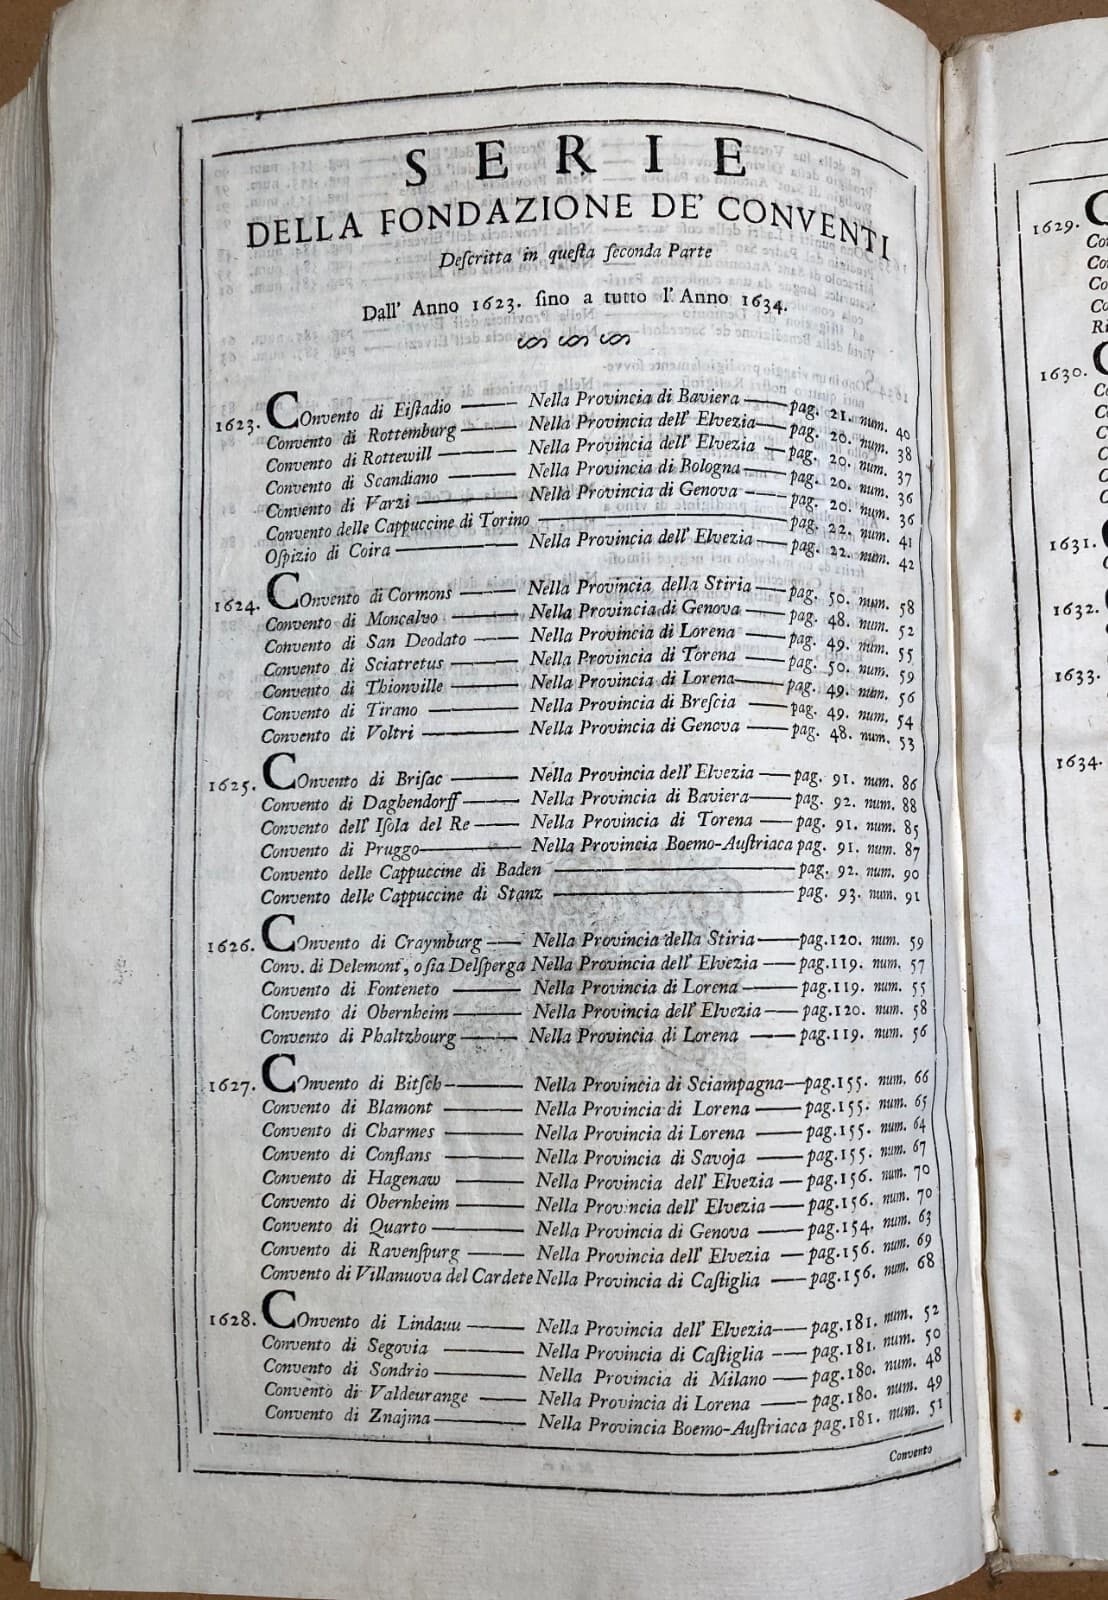 SERIE
DELLA FONDAZIONE DE' CONVENTI
Deſcritta in queſta ſeconda Parte
Dall' Anno 1623. ſino a tutto l'Anno 1634.
1623. COnvento di Eiſtadio —— Nella Provincia di Baviera —— pag. 21. num. 40
Convento di Rottemburg —— Nella Provincia dell' Elvezia — pag. 20. num. 38
Convento di Rottewill —— Nella Provincia dell' Elvezia — pag. 20. num. 37
Convento di Scandiano —— Nella Provincia di Bologna — pag. 20. num. 36
Convento di Varzi —— Nella Provincia di Genova —— pag. 20. num. 36
Convento delle Cappuccine di Torino —— pag. 22. num. 41
Oſpizio di Coira —— Nella Provincia dell' Elvezia — pag. 22. num. 42
1624. COnvento di Cormons —— Nella Provincia della Stiria — pag. 50. num. 58
Convento di Moncalvo —— Nella Provincia di Genova — pag. 48. num. 52
Convento di San Deodato —— Nella Provincia di Lorena — pag. 49. num. 55
Convento di Sciatretus —— Nella Provincia di Torena — pag. 50. num. 59
Convento di Thionville —— Nella Provincia di Lorena — pag. 49. num. 56
Convento di Tirano —— Nella Provincia di Breſcia — pag. 49. num. 54
Convento di Voltri —— Nella Provincia di Genova — pag. 48. num. 53
1625. COnvento di Briſac —— Nella Provincia dell' Elvezia — pag. 91. num. 86
Convento di Daghendorff —— Nella Provincia di Baviera — pag. 92. num. 88
Convento dell' Iſola del Re —— Nella Provincia di Torena — pag. 91. num. 85
Convento di Pruggo —— Nella Provincia Boemo-Auſtriaca pag. 91. num. 87
Convento delle Cappuccine di Baden —— pag. 92. num. 90
Convento delle Cappuccine di Stanz —— pag. 93. num. 91
1626. COnvento di Craymburg —— Nella Provincia della Stiria — pag.120. num. 59
Conv. di Delemont, o ſia Delſperga Nella Provincia dell' Elvezia — pag.119. num. 57
Convento di Fonteneto —— Nella Provincia di Lorena — pag.119. num. 55
Convento di Obernheim —— Nella Provincia dell' Elvezia — pag.120. num. 58
Convento di Phaltzbourg —— Nella Provincia di Lorena — pag.119. num. 56
1627. COnvento di Bitſch —— Nella Provincia di Sciampagna — pag.155. num. 66
Convento di Blamont —— Nella Provincia di Lorena — pag.155. num. 65
Convento di Charmes —— Nella Provincia di Lorena — pag.155. num. 64
Convento di Conſlans —— Nella Provincia di Savoja — pag.155. num. 67
Convento di Hagenaw —— Nella Provincia dell' Elvezia — pag.156. num. 70
Convento di Obernheim —— Nella Provincia dell' Elvezia — pag.156. num. 70
Convento di Quarto —— Nella Provincia di Genova — pag.154. num. 63
Convento di Ravenſpurg —— Nella Provincia dell' Elvezia — pag.156. num. 69
Convento di Villanuova del Cardete Nella Provincia di Caſtiglia — pag.156. num. 68
1628. COnvento di Lindauu —— Nella Provincia dell' Elvezia — pag.181. num. 52
Convento di Segovia —— Nella Provincia di Caſtiglia — pag.181. num. 50
Convento di Sondrio —— Nella Provincia di Milano — pag.180. num. 48
Convento di Valdeurange —— Nella Provincia di Lorena — pag.180. num. 49
Convento di Znajma —— Nella Provincia Boemo-Auſtriaca pag.181. num. 51
Convento
1629. C
Co
Co
Co
Co
Ri
1630.
1631.
1632.
1633.
1634.